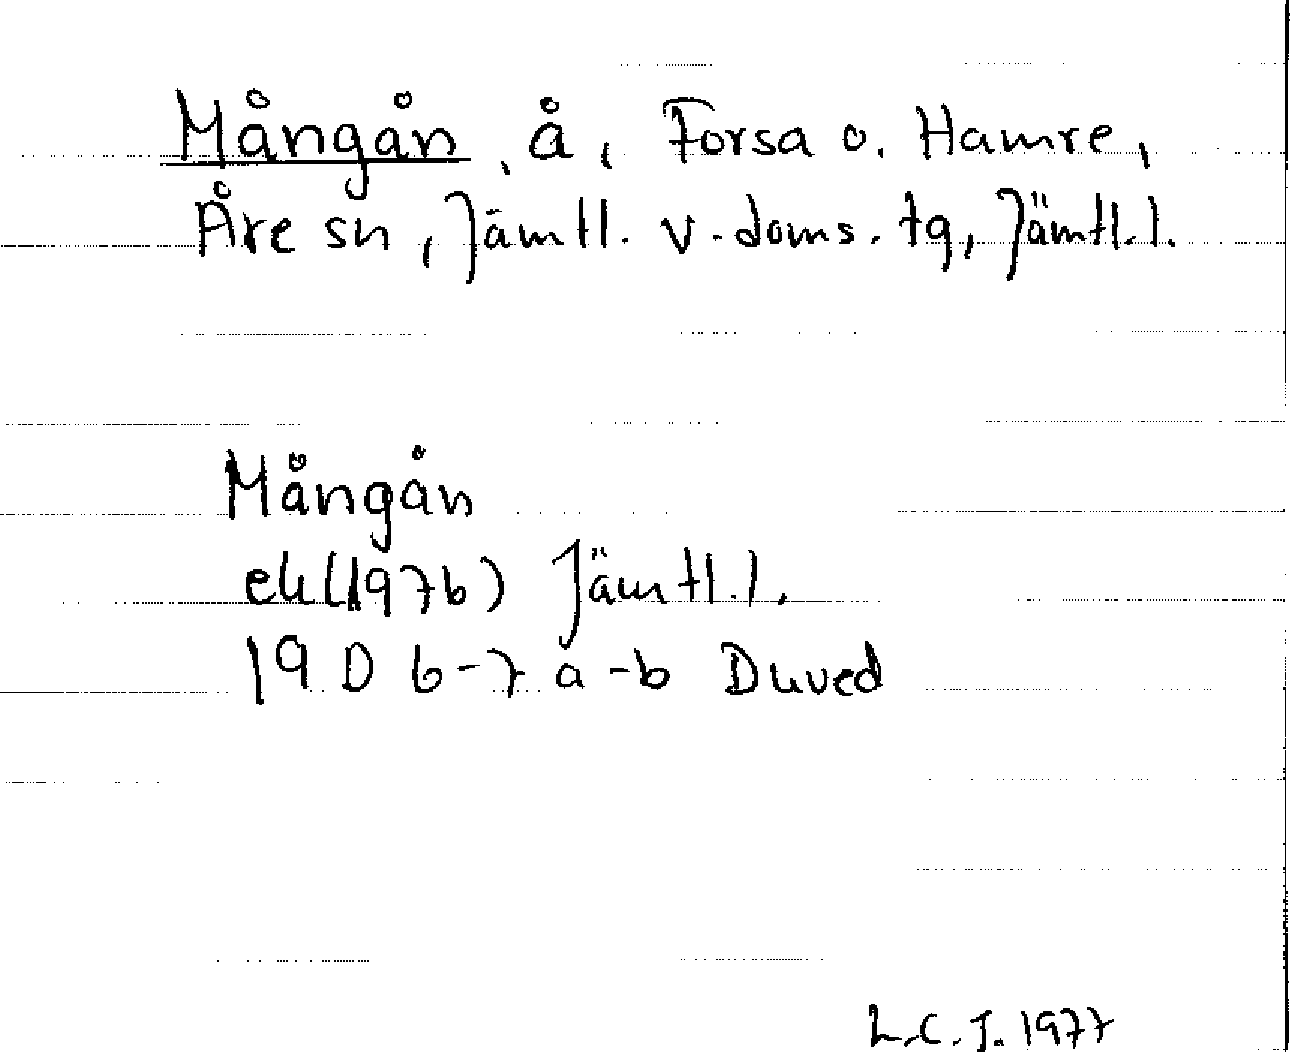 Mångån, å, Forsa o. Hamre,
Åre sn, Jämtl. v. doms. tg, Jämtl. l.
Mångån
ek (1976) Jämtl. l.
19 D 6-7 a-b Duved
L.C.J. 1977